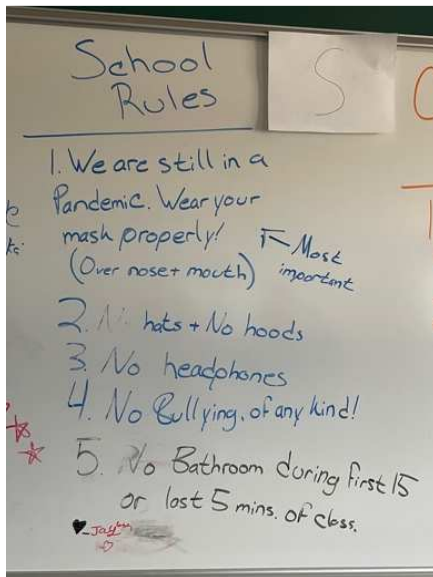 School
Rules
S
1. We are still in a
Pandemic. Wear your
mask properly!
(Over nose + mouth)
Most
important
2. No hats + No hoods
3. No headphones
4. No Bullying, of any kind!
5. No Bathroom during first 15
or last 5 mins. of class.